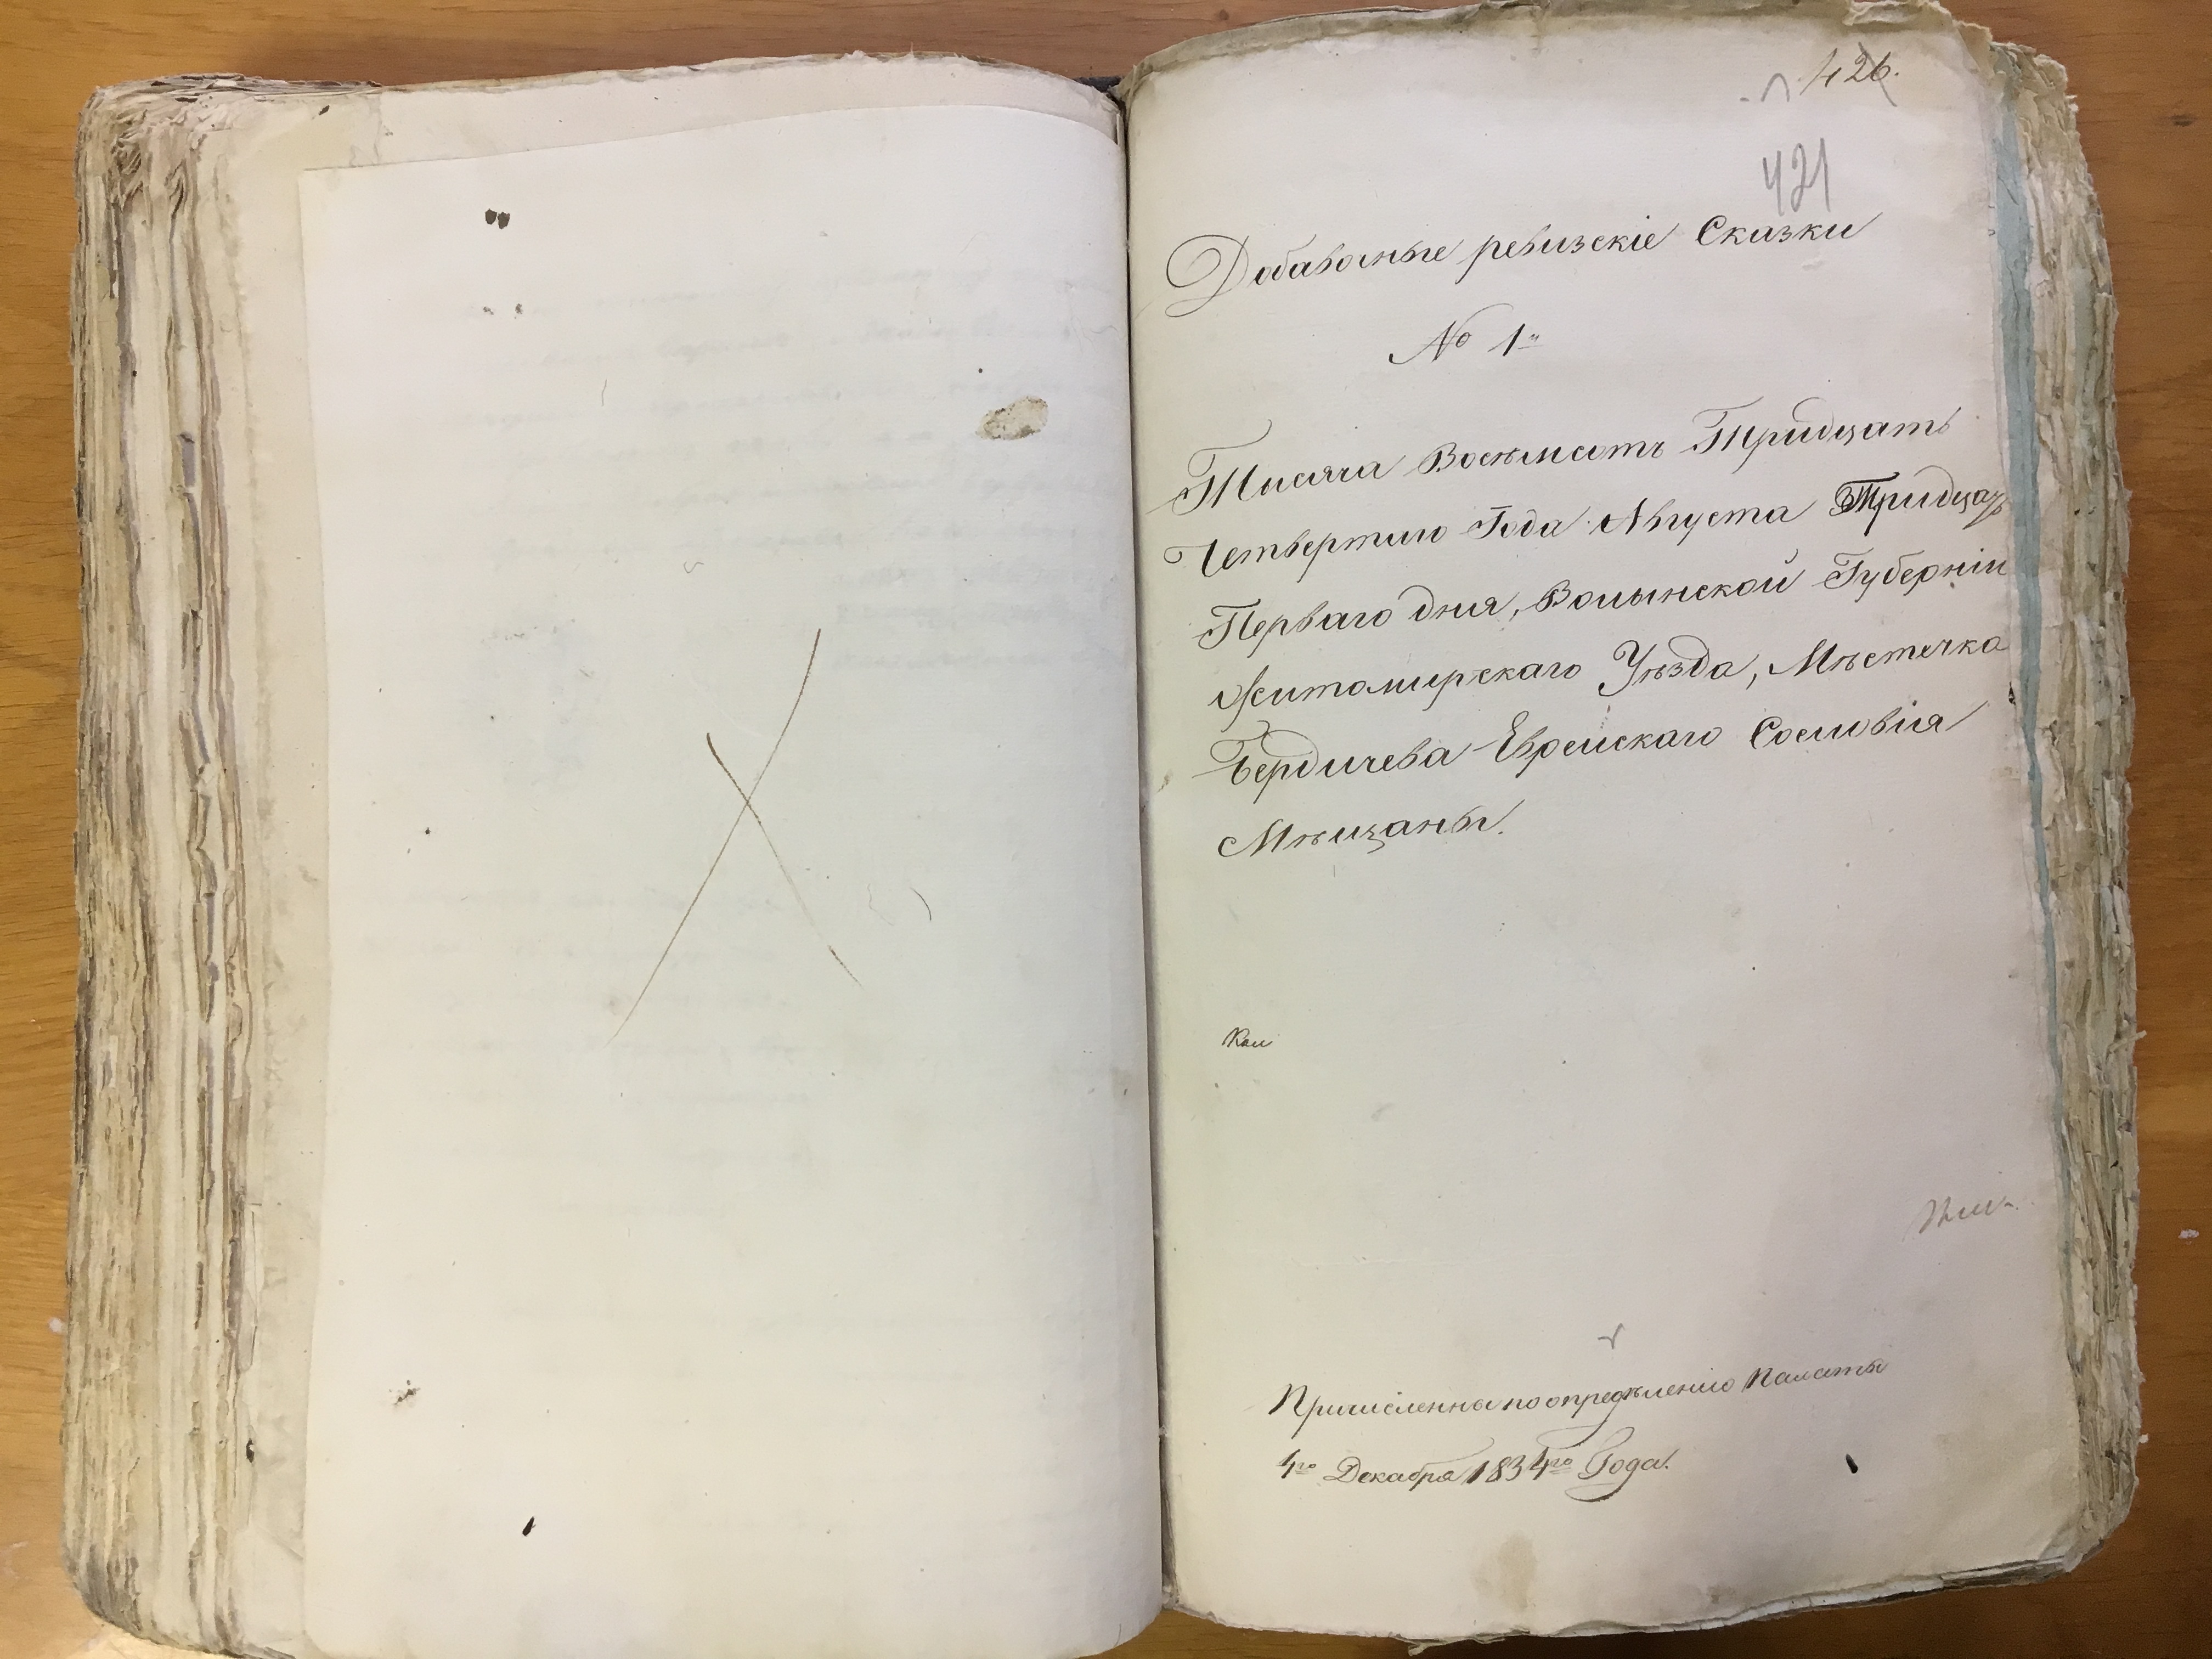 426.
421
Добавочные ревизскіе Сказки
№ 1й
Тысяча Восѣмсотъ Тридцать
Четвертаго Года Августа Тридцать
Перваго дня, Волынской Губерніи
Житомирскаго Уѣзда, Мѣстечка
Бердичева Еврейскаго Сословія
Мѣщаны.
Причисленны по опредѣленію Палаты
4го Декабря 1834го Года.